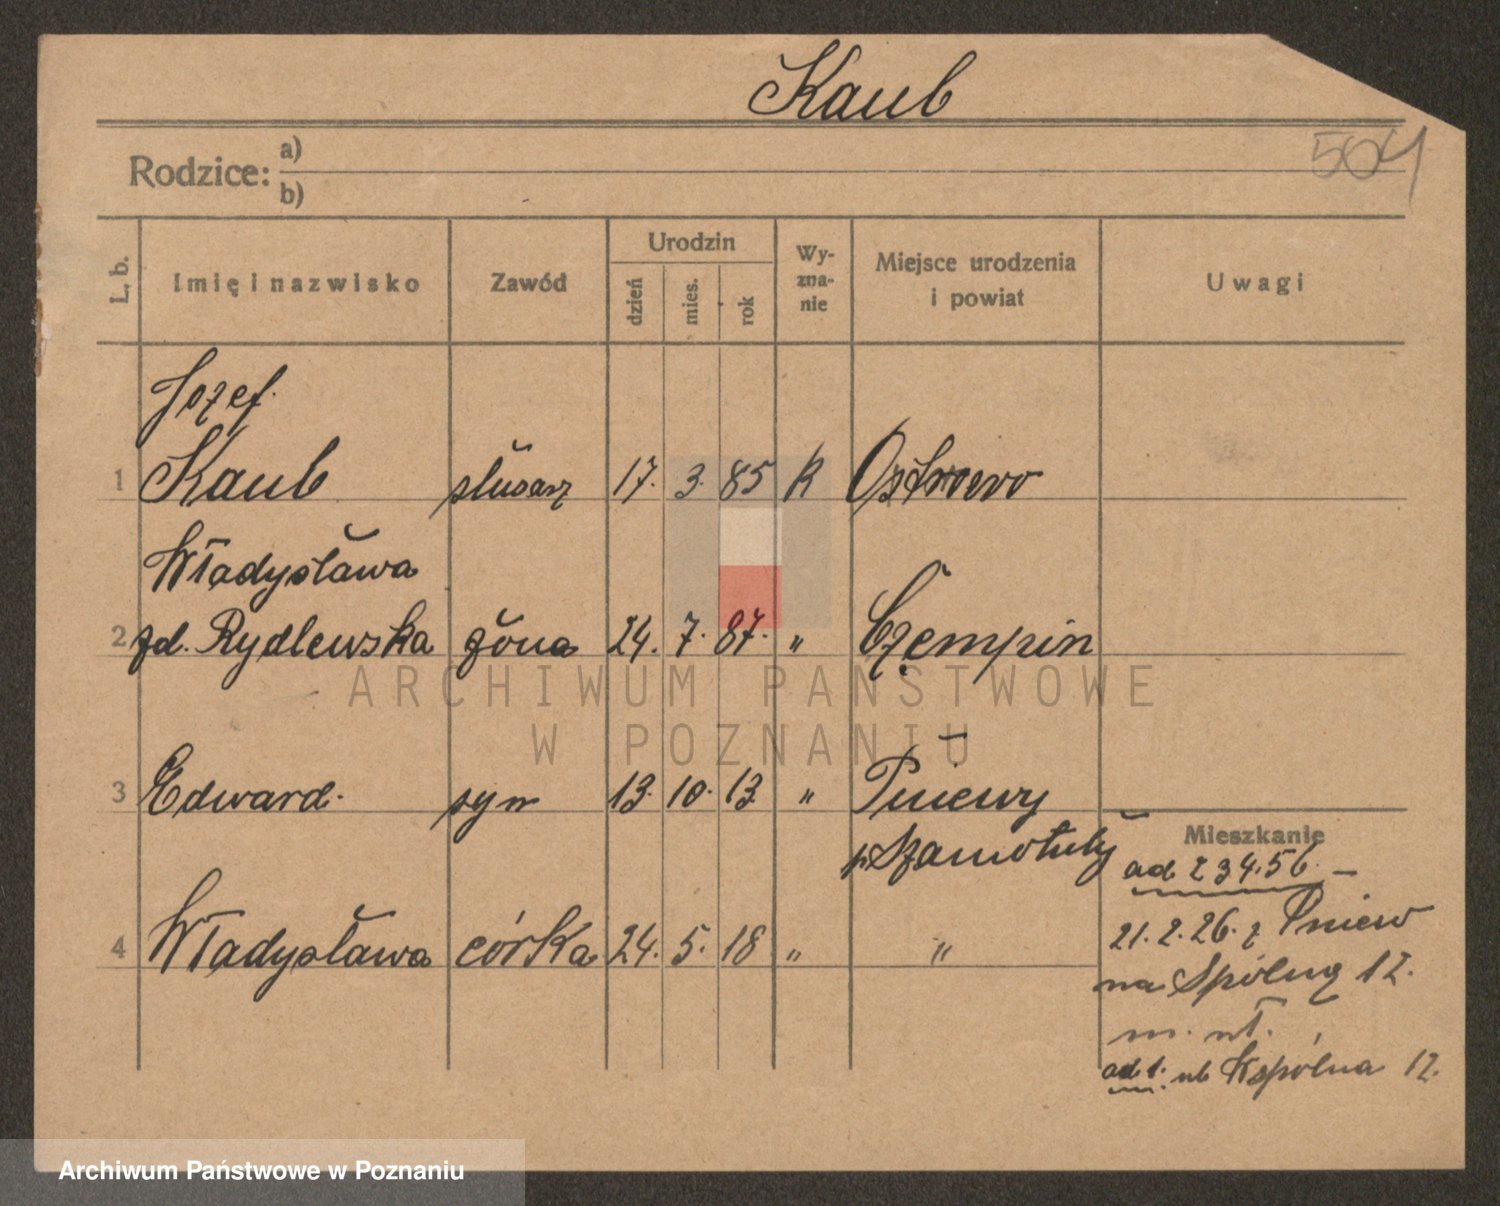 Kaub
504
Rodzice: a)
b)
L. b. Imię i nazwisko Zawód Urodzin dzień mies. rok Wy-zna-nie Miejsce urodzenia i powiat Uwagi
Józef
1 Kaub ślusarz 17. 3. 85 R Ostrowo
Władysława
2 zd. Rydlewska żona 24. 7. 87. " Czempin
ARCHIWUM PAŃSTWOWE
W POZNANIU
3 Edward. syn 13. 10. 13. " Pniewy
p. Szamotuły
Mieszkanie
ad 2 3 4. 5 6. —
4 Władysława córka 24. 5. 18 " "
21. 2. 26. z Pniew
na Spólną 12.
ad 1. ub Wspólna 12.
Archiwum Państwowe w Poznaniu